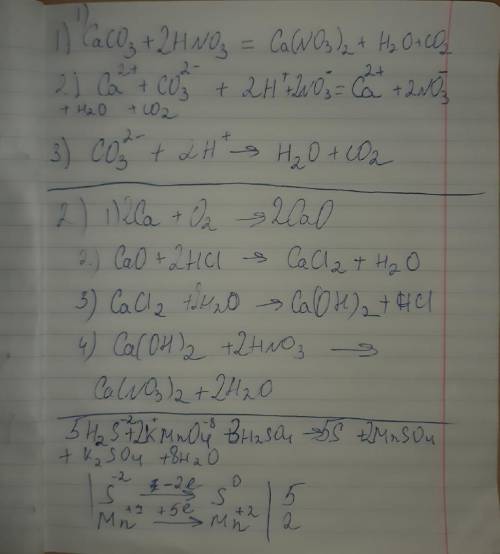 1)
1) CaCO₃ + 2HNO₃ = Ca(NO₃)₂ + H₂O + CO₂
2) Ca²⁺ + CO₃²⁻ + 2H⁺ + 2NO₃⁻ = Ca²⁺ + 2NO₃⁻
+ H₂O + CO₂
3) CO₃²⁻ + 2H⁺ → H₂O + CO₂
2) 1) 2Ca + O₂ → 2CaO
2.) CaO + 2HCl → CaCl₂ + H₂O
3) CaCl₂ + 2H₂O → Ca(OH)₂ + HCl
4) Ca(OH)₂ + 2HNO₃ →
Ca(NO₃)₂ + 2H₂O
5H₂S⁻² + 2KMnO₄⁻⁸ + 3H₂SO₄ → 5S + 2MnSO₄
+ K₂SO₄ + 8H₂O
S⁻² −2e → S⁰ | 5
Mn⁺⁷ +5e → Mn⁺² | 2